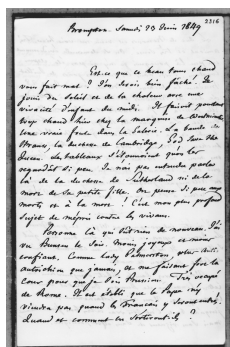 2316
Brompton. Samedi 23 Juin 1849
Est-ce que ce beau tems chaud
vous fait mal? J'en serais bien fâchée. Je
jouis du soleil et de la chaleur avec une
vivacité d'enfant du midi. Il faisait pourtant
trop chaud hier chez la marquise de
une vraie foule dans la Galerie. La bande de
Strauss, la duchesse de Cambridge, God save the
Queen. Les tableaux s'étonnaient qu'on les
regardât si peu. Je n'ai pas entendu parler
là de la duchesse de Sutherland ni de la
mort de sa petite fille. On pense si peu aux
morts et à la mort! C'est mon plus profond
sujet de mépris contre les vivans.
Personne là qui dit rien de nouveau. J'ai
vu Bunsen le soir. Moins joyeux et moins
confiant. Comme lady Palmerston, plus anti
autrichien que jamais, et me faisant fort la
cour pour que je sois Prussien. Très occupé
de Rome. Il est établi que le Pape n'y
viendra pas quand les Français y seront entrés.
Quand et comment en sortiront-ils?